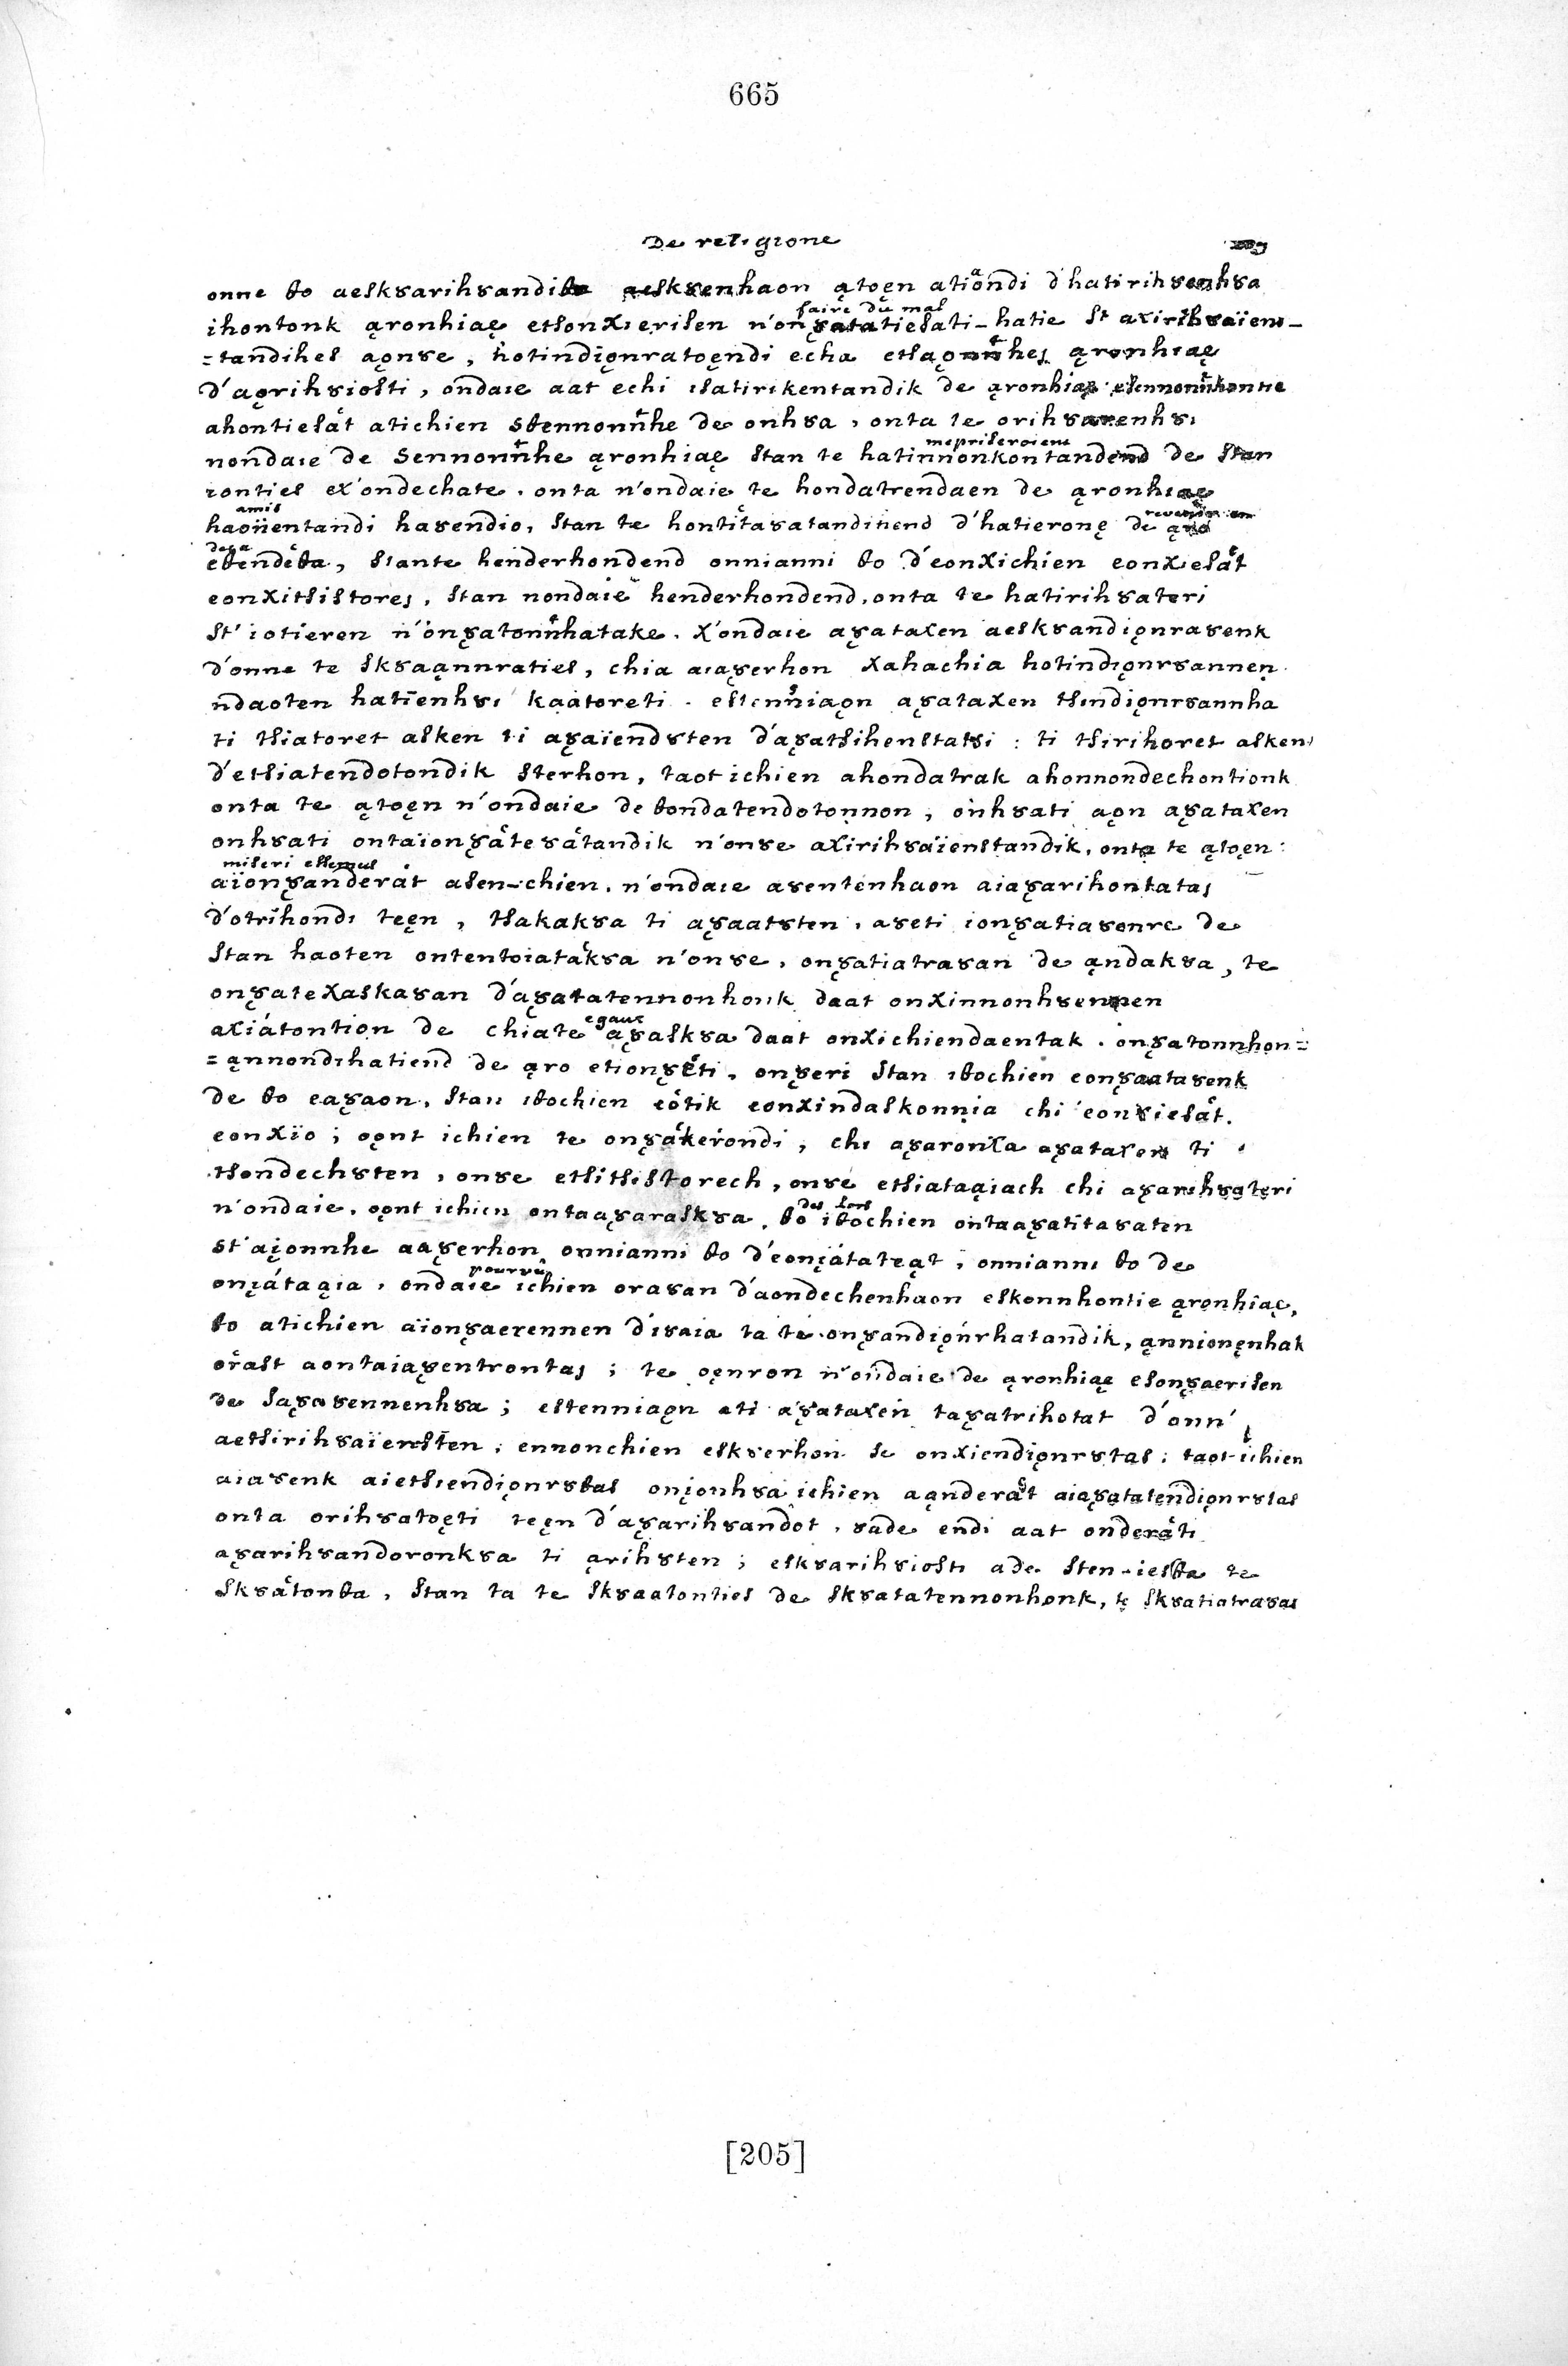 665
De religione
onne θo aeskȣarihȣandiθe aeskȣenhaon ątoęn ationdi d'hatirihȣenhȣa
faire du mal
ihontonk ąronhiaę etsonxierisen n'onȣatatiesati-hatie st axirihȣaïens-
=tandihes aǫnȣe, hotindiǫnratoęndi echa etsaǫnnhes ąronhiaę
d'aǫrihȣiosti, ondaie aat echi isatirikentandik de ąronhiaę esennonnhontie
ahontiesat atichien stennonnhe de onhȣa, onta te orihȣaȣenhȣi
mepriseroient
nondaie de Sennonnhe ąronhiaę stan te hatinnonkontandend de stan
ionties ex'ondechate. onta n'ondaie te hondatrendaen de ąronhiaę
amis
haonnentandi haȣendio, stan te hontitaȣatandinend d'hatieronę de ąro
deja
eθendeθa, stante henderhondend onnianni θo d'eonxichien eonxiesat
eonxitsistores, stan nondaie henderhondend, onta te hatirihȣateri
st'iotieren n'onȣatonnhatake. x'ondaie aȣataxen aeskȣandiǫnraȣenk
d'onne te skȣaąnnraties, chia aiaȣerhon xahachia hotindiǫnrȣannen
ndaoten hatienhȣi kaatoreti. estenniaǫn aȣataxen tsindiǫnrȣannha
ti tsiatoret asken ti aȣaïendȣten d'aȣatsihenstatsi: ti tsirihoret asken
d'etsiatendotondik sterhon, taot ichien ahondatrak ahonnondechontionk
onta te ątoęn n'ondaie de θondatendotonnon, onhȣati aǫn aȣataxen
onhȣati ontaionȣatesatandik n'onȣe axirihȣaienstandik, onta te ątoęn:
miseri essemus
aïonȣanderat asen-chien. n'ondaie aȣentenhaon aiaȣarihontatas
d'otrihondi teęn, tsakakȣa ti aȣaatȣten, aȣeti ionȣatiaȣenre de
stan haoten ontentoiatakȣa n'onȣe, onȣatiatraȣan de ąndakȣa, te
onȣatexaskaȣan d'aȣatatennonhonk daat onxinnonhȣennen
egaux
axiátontion de chiate aȣaskȣa daat onxichiendaentak. onȣatonnhon=
=ąnnondihatiend de ąro etionȣeti, onȣeri stan iθochien eonȣaataȣenk
de θo eaȣaon, stan iθochien eotik eonxindaskonnia chi eonxiesat.
eonxio; oǫnt ichien te onȣakerondi, chi aȣaronxa aȣataxen ti
tsondechȣten, onȣe etsitsistorech, onȣe etsiataąiach chi aȣarihȣateri
des lors
n'ondaie, oǫnt ichien ontaaȣaraskȣa, θo iθochien ontaaȣatitaȣaten
st'aįonnhe aaȣerhon onnianni θo d'eonįátateąt, onnianni θo de
pourvû
onįátaąia, ondaie ichien oraȣan d'aondechenhaon eskonnhontie ąronhiaę,
θo atichien aïonȣaerennen d'iȣaia ta te onȣandiǫnrhatandik, ąnnionęnhak
orast aontaiaȣentrontas; te oęnron n'ondaie de ąronhiaę esonȣaerisen
de saȣaȣennenhȣa; estenniaǫn ati aȣataxen taȣatrihotat d'onn'
aetsirihȣaïensten; ennonchien eskȣerhon se onxiendiǫnrȣtas; taot ichien
aiaȣenk aietsiendiǫnrȣθas onįonhȣa ichien aąnderat aiaȣatatendiǫnrȣtas
onta orihȣatoęti teęn d'aȣarihȣandot, ȣade endi aat onderati
aȣarihȣandoronkȣa ti ąrihȣten; eskȣarihȣiosti ade sten-iesθa te
skȣatonθa, stan ta te skȣaatonties de skȣatatennonhonk, te skȣatiatraȣas
[205]